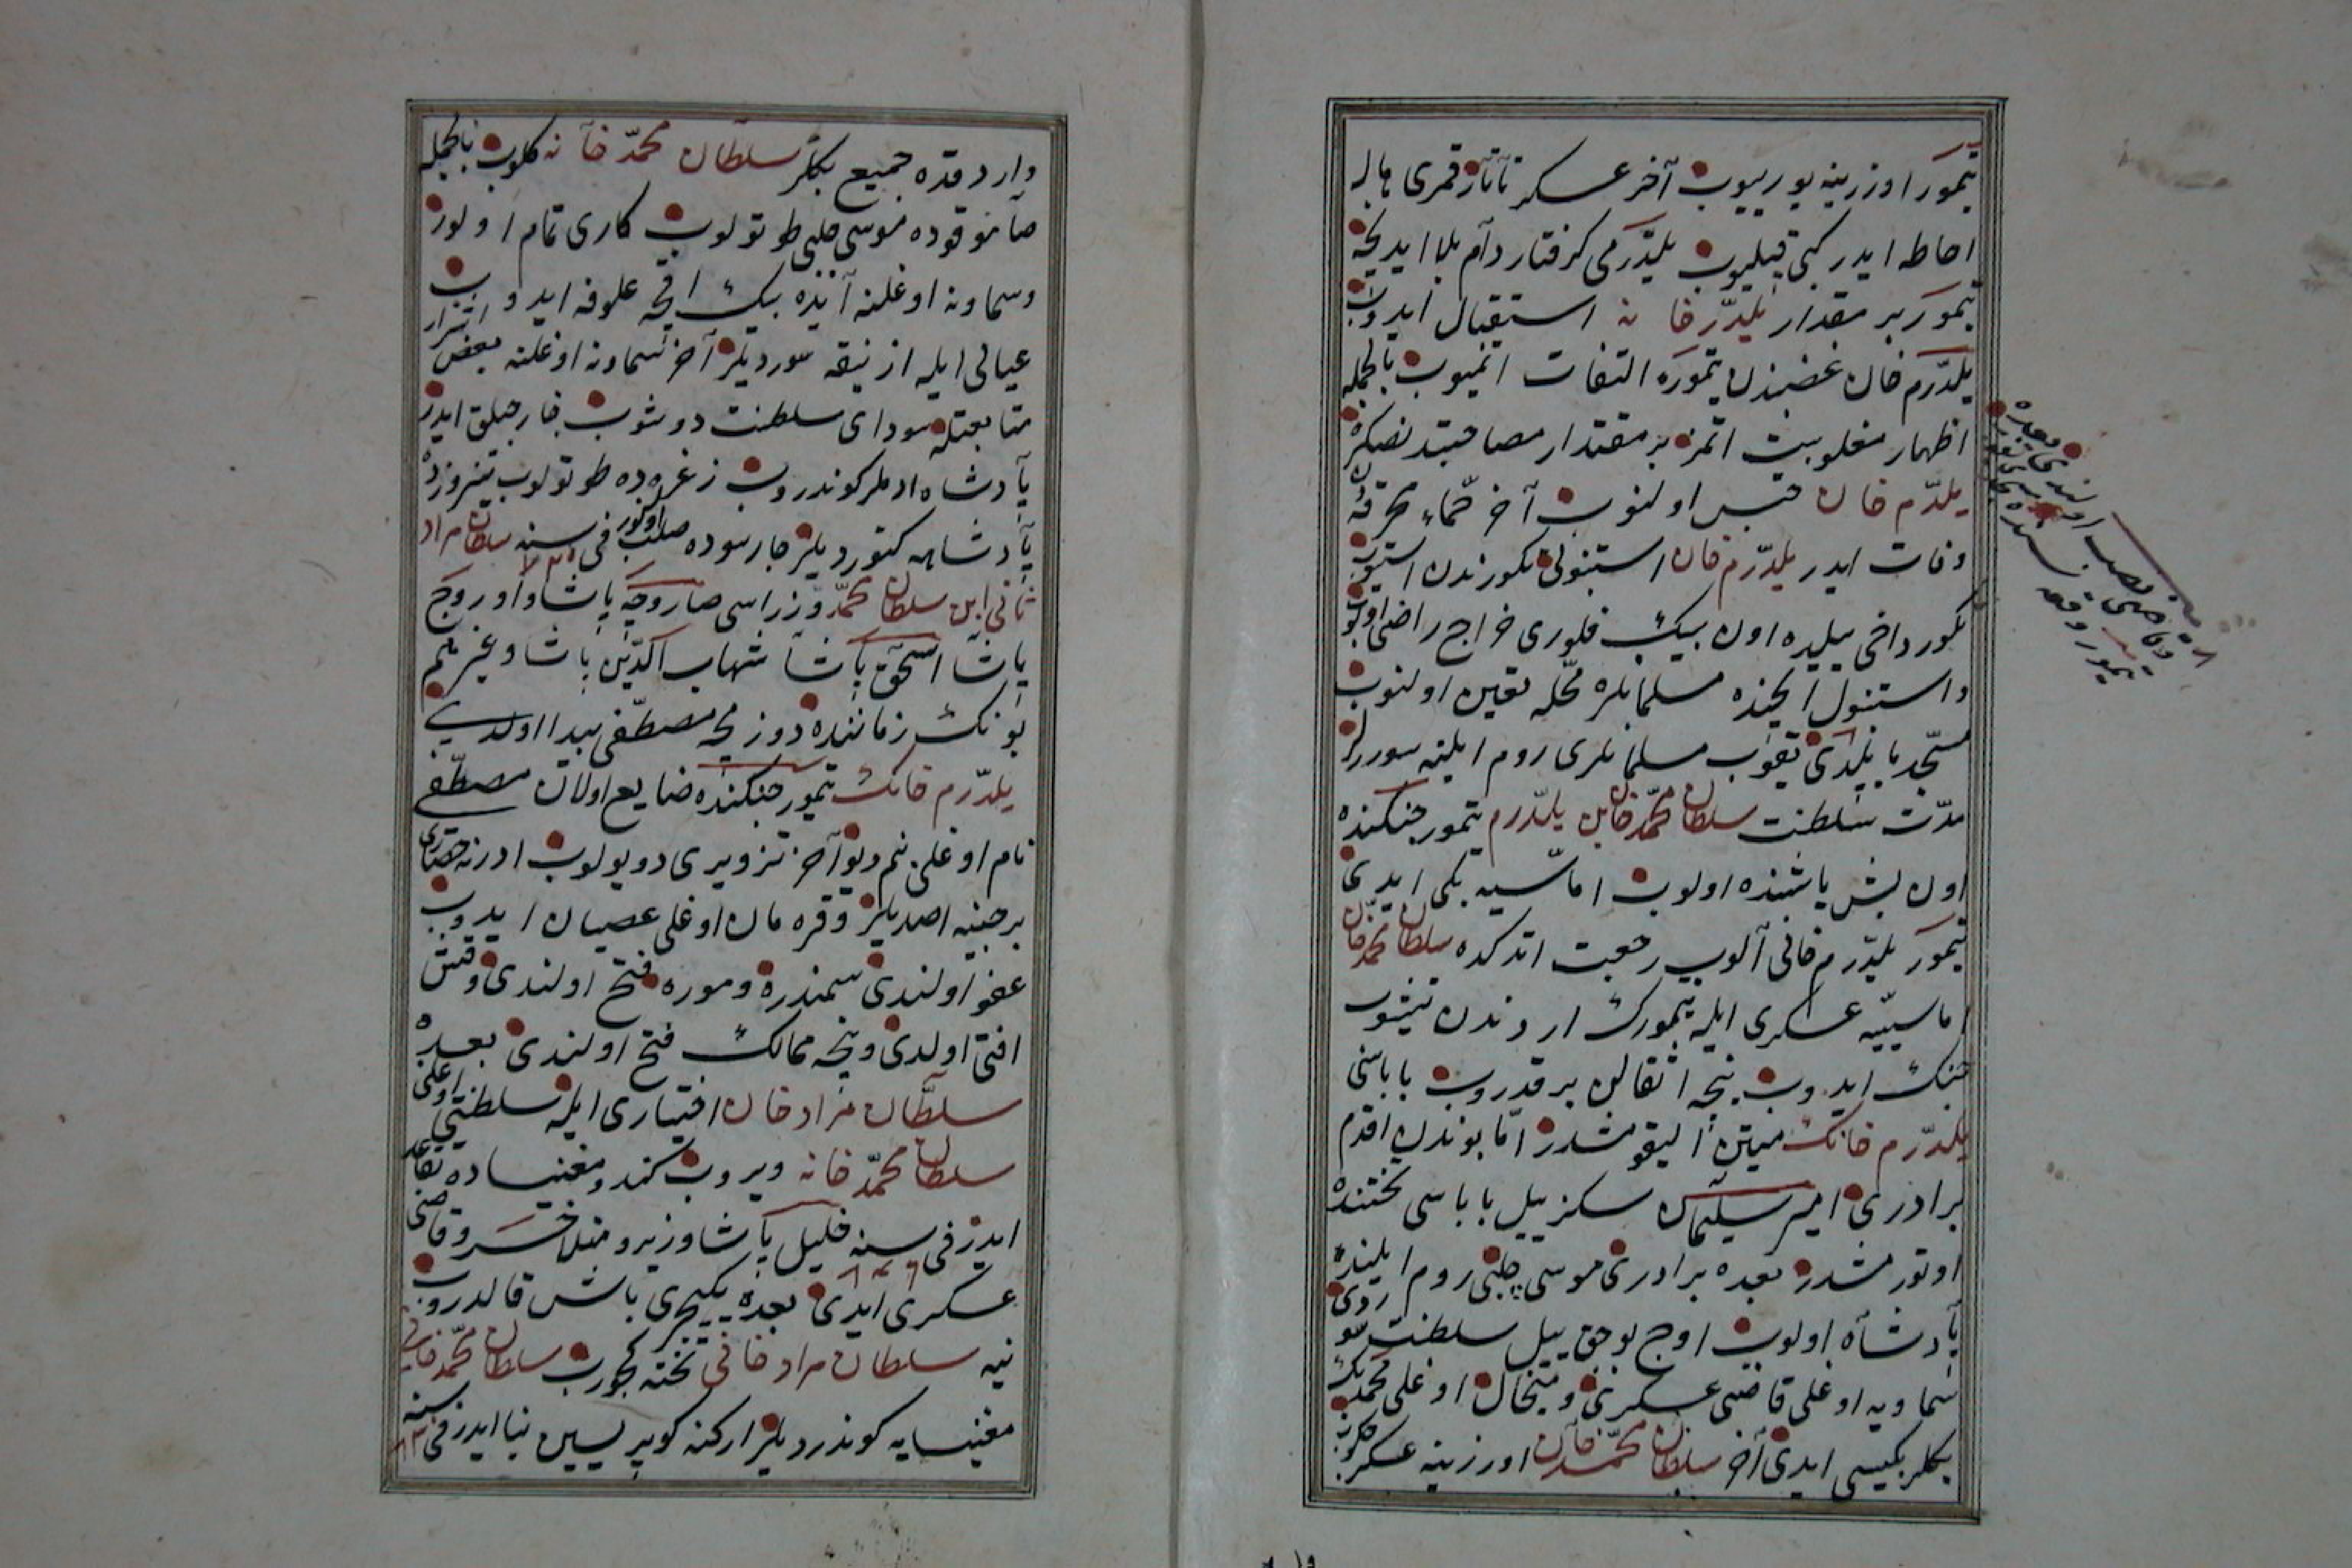 تیمور اوزرینه یورییوب آخر عسکر تاتار قمری هاله
احاطه ایدر کبی قیلیوب یلدرمی گرفتار دام بلا ایدیجک
تیمور بر مقدار یلدرم خانه استقبال ایدوب
یلدرم خان غضبندن تیموره التفات اتمیوب بالجمله
اظهار مغلوبیت اتمز بر مقدار مصاحبتدنصکره
یلدرم خان حبس اولنوب آخر حماء محرقه
وفات ایدر یلدرم خان استنبولی تکورندن استیوب
تکور داخی ییلیده اون بیک فلوری خراج راضی اولوب
و استنبول ایچنده مسلمانلره محله تعین اولنوب
مسجد یاپلدی تقوب مسلمانلری روم ایلنه سوررلر
مدت سلطنت سلطان محمد خان بن یلدرم تیمور جنکنده
اون بش یاشنده اولوب اماسیه بکی ایدی
تیمور یلدرم خانی آلوب رجعت اتدکده سلطان محمد خان
اماسیه عسکری ایله تیمورک اردندن یتیشوب
جنک ایدوب نیجه اثقالن بر قدروب باباسی
یلدرم خانک میتن الیقومشدر اما بوندن اقدم
برادری امیر سلیمان سکز ییل باباسی تختنده
اوتورمشدر بعده برادری موسی چلبی روم ایلینده
پادشاه اولوب اوچ بوجق ییل سلطنت سوردی
سماویه اوغلی قاضی عسکرنی و میخال اوغلی محمد بک
بکلربکیسی ایدی آخر سلطان محمد خان اوزرینه عسکر چکوب
وارد قده جمیع بکلر سلطان محمد خانه کلوب بالجمله
صامو قوده موسی چلبی طوتولوب کاری تمام اولور
وسماونه اوغلنه آیده بیک اقچه علوفه ایدوب
عیالی ایله ازنیقه سوردیلر آخر سماونه اوغلنه بعض اشرار
متابعتله سودای سلطنت دوشوب خارجیلق ایدر
پادشاه ادملر کوندروب زغره ده طوتولوب سیروزده
پادشاهه کتوردیلر چارسوده صلب اولنور فی سنه سلطان مراد
ثانی ابن سلطان محمد وزراسی صاروجه پاشا و اوروج
پاشا اسحق پاشا شهاب الدین پاشا و غیرهم
بونک زماننده دوزمجه مصطفی پیدا اولدی
یلدرم خانک تیمور جنکنده ضایع اولان مصطفی
نام اوغلی بنم دیو آخر تزویری دویولوب ادرنه حصاری
برجینه اصدیلر و قره مان اوغلی عصیان ایدوب
عفو اولندی سمندره و موره فتح اولندی و قتش
افتی اولدی و نیجه ممالک فتح اولندی بعده
سلطان مراد خان اختیاری ایله سلطنتی اوغلی
سلطان محمد خانه ویروب کندو مغنیساده تقاعد
ایدر فی سنه خلیل پاشا وزیر و منلا خسرو قاضی
عسکری ایدی بعده یکیچری باش قالدروب
ینه سلطان مراد خانی تخته کچورب سلطان محمد خانی
مغنیسایه کوندردیلر ارکنه کوپریسین بنا ایدر فی سنه